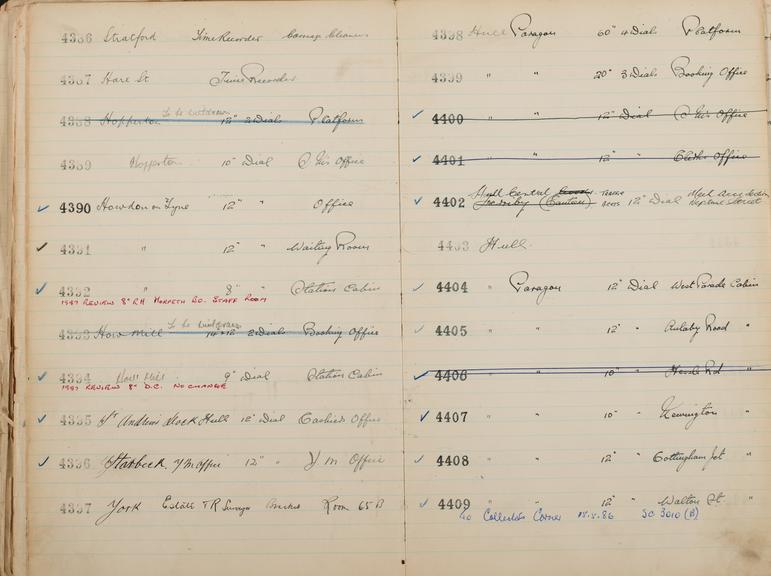 4386 Stratford Time Recorder Carriage Cleaners
4387 Hare St Time Recorder
To be withdrawn
4388 Hopperton 12" 2 Dials Platform
4389 Hopperton 10" Dial S. M's Office
4390 Howdon on Tyne 12" " Office
4391 " 12" " Waiting Room
4392 " 8" " Station Cabin
1987 REVIEW 8" RH MORPETH BO. STAFF ROOM
To be withdrawn
4393 How Mill 14" + 12" 2 Dials Booking Office
4394 How Mill 9" Dial Station Cabin
1987 REVIEW 8" D.C. NO CHANGE
4395 St Andrews Dock Hull 12" Dial Cashiers Office
4396 Starbeck Y M Office 12" " Y. M Office
4397 York Estate & R Surveyor Room 65 B
4398 Hull Paragon 60" 4 Dials Platform
4399 " " 20" 3 Dials Booking Office
4400 " " 12" Dial S. M's Office
4401 " " 12" " Clerks Office
4402 Hull Central 12" Dial
Neptune Street
4403 Hull
4404 " Paragon 12" Dial West Parade Cabin
4405 " " 12" " Anlaby Road "
4406 " " 10" " Hessle Rd "
4407 " " 10" " Newington "
4408 " " 12" " Cottingham Jct "
4409 " " 12" " Walton St. "
To Collectors Corner 15.5.86 SC 3010 (B)